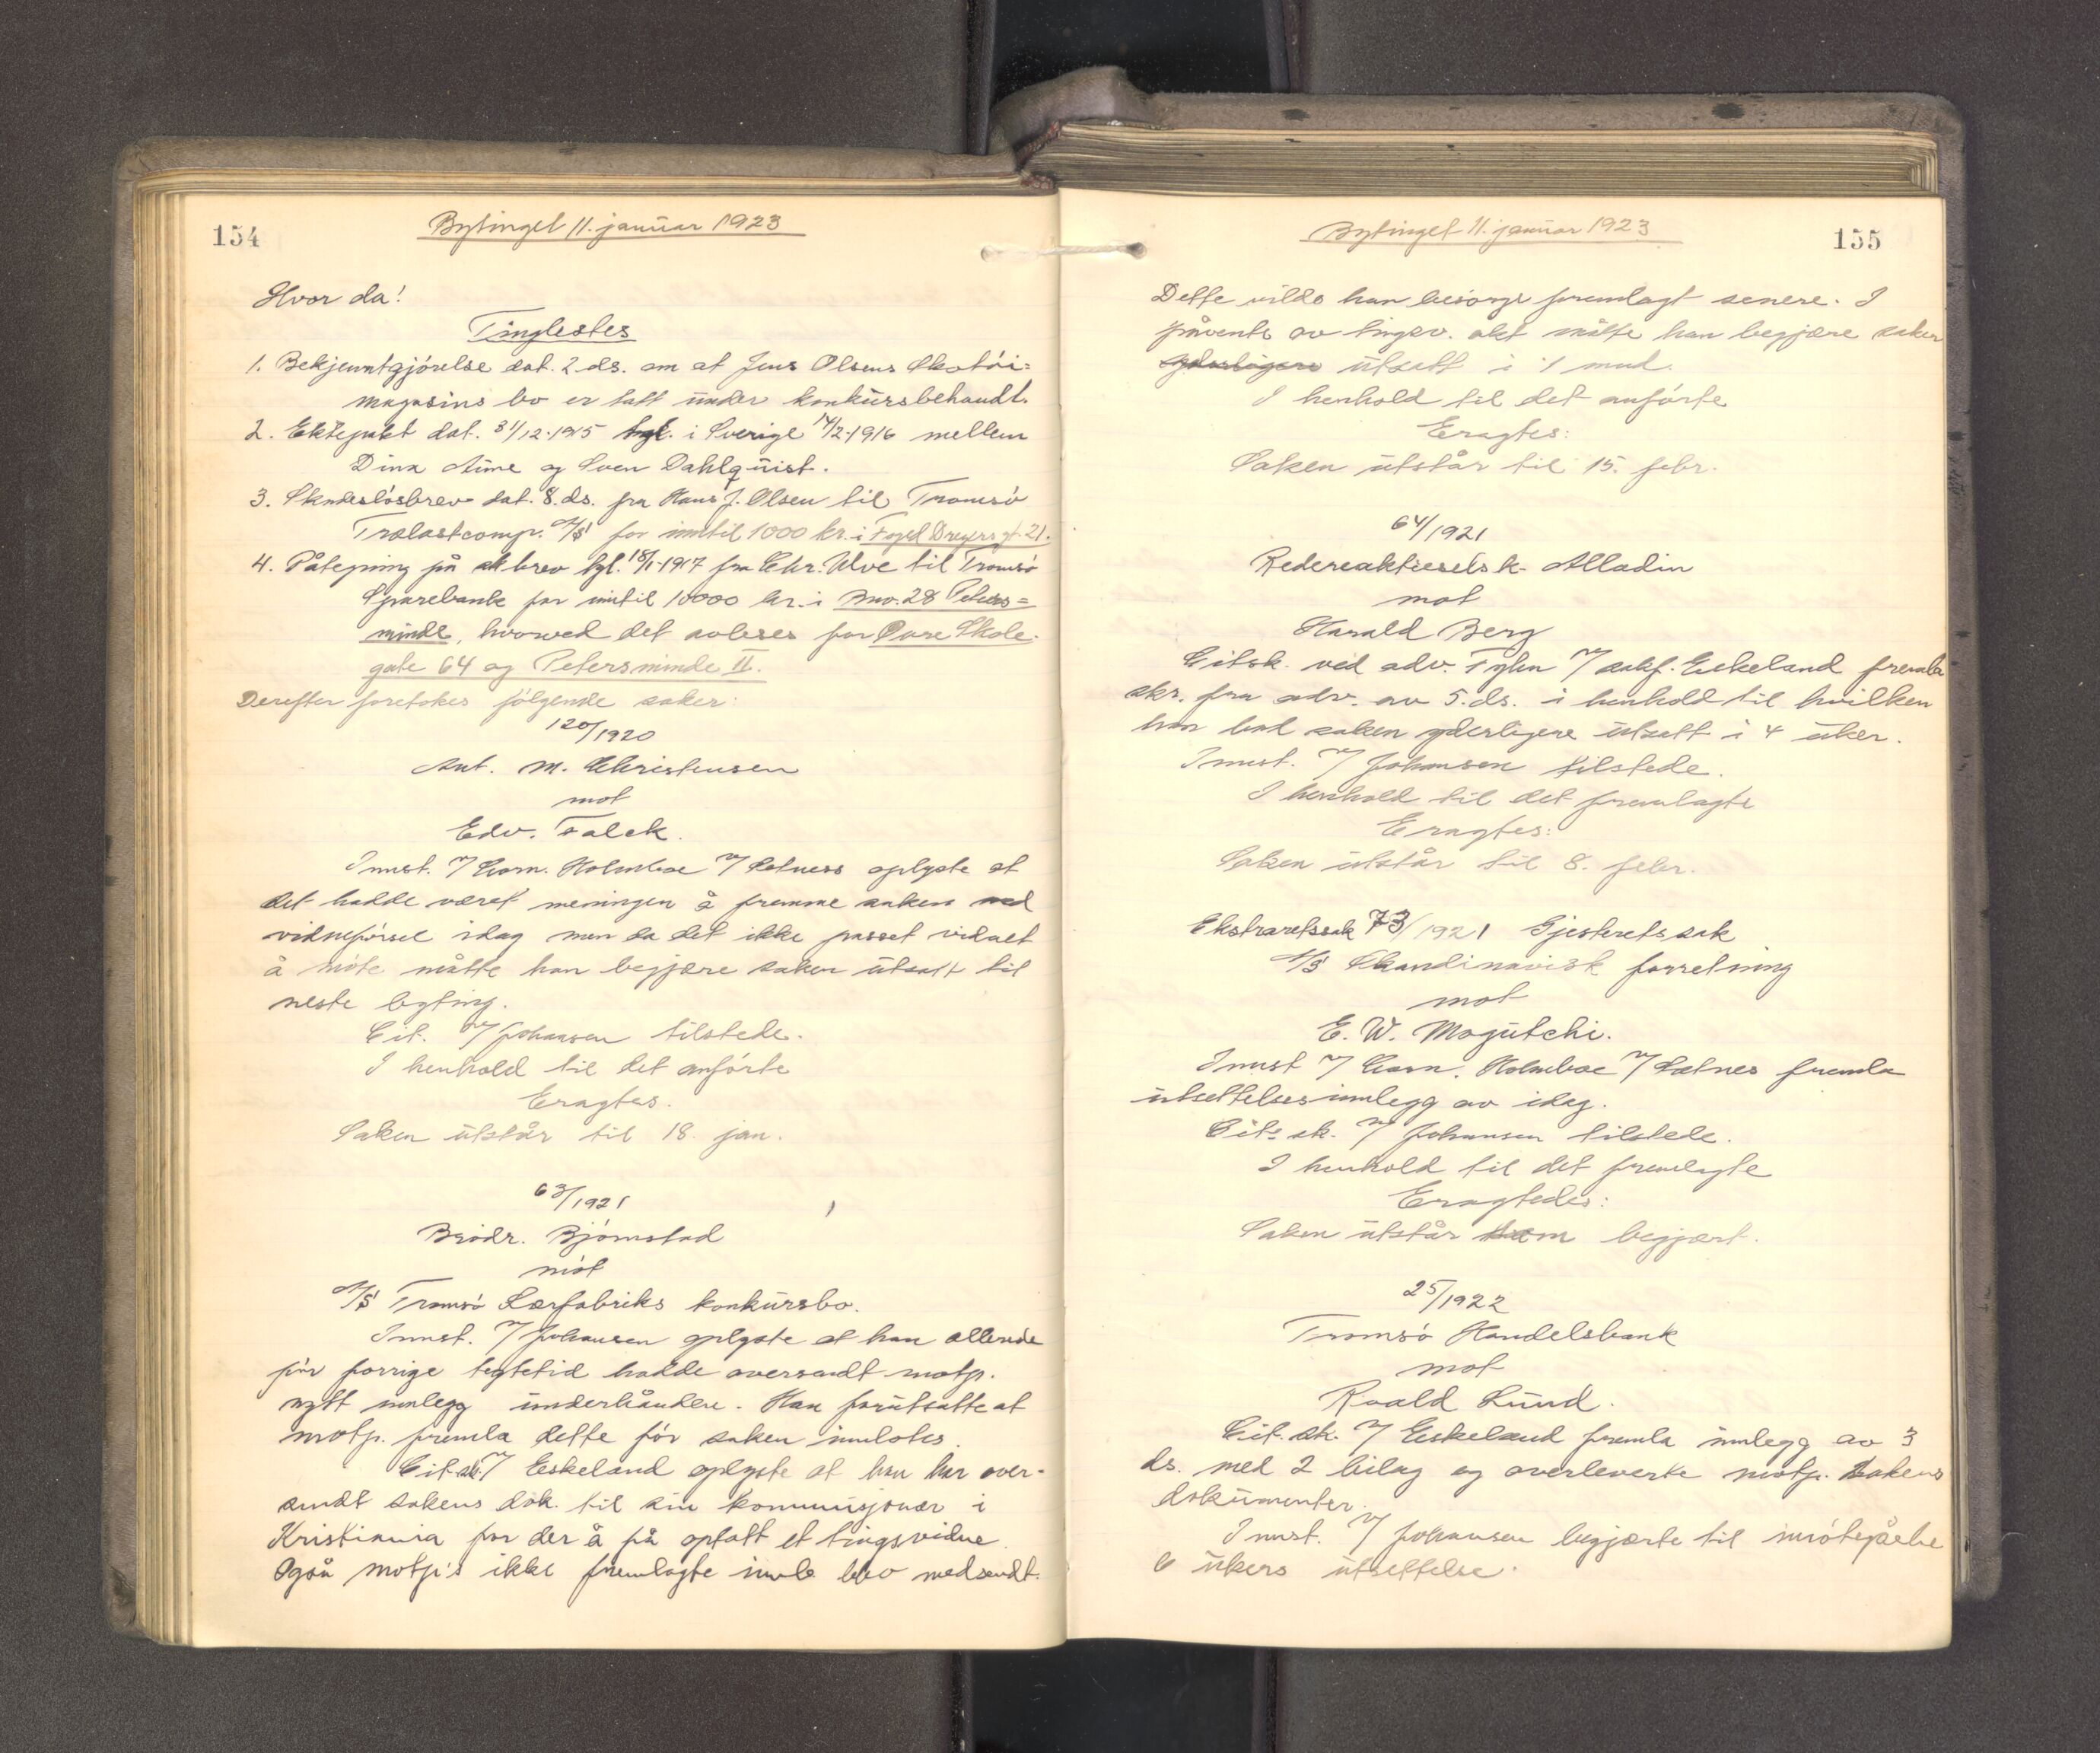 154
Bytinget 11. januar 1923
Hvor da!
Tinglestes
1. Bekjenntgjörelse dat. 2 ds. om at Jens Olsens Skotöi=
magasins bo er tatt under konkursbehandl.
2. Ektepakt dat. 31/12-1915 tgl. i Sverige 14/2-1916 mellem
Dina Aune og Sven Dahlquist.
3. Skadeslösbrev dat. 8. ds. fra Hans J. Olsen til Tromsö
Trælastcomp. A/S for inntil 1000 kr. i Fogd Dreyers gt. 21.
4. Påtegning på brev tgl. 18/1-1917 fra Chr. Ulve til Tromsö
Sparebank for inntil 10000 kr. i Bno. 28 Peters=
minde, hvorved det avleses for Övre Skole-
gate 64 og Petersminde II.
Derefter foretokes fölgende saker:
120/1920
Ant. M. Christensen
mot
Edv. Falck.
Innst. v/ Corn. Holmboe v/ Lotness oplyste at
det hadde været meningen å fremme saken med
vidneförsel idag men da det ikke passet vidnet
å möte måtte han begjære saken utsatt til
neste byting.
Cit. v/ Johansen tilstede.
I henhold til det anförte
Eragtes.
Saken utstår til 18. jan.
63/1921
Brödr. Björnstad
mot
A/S Tromsö Lærfabriks konkursbo.
Innst. v/ Johansen oplyste at han allerede
för forrige tegtetid hadde oversendt motp.
nytt innlegg underhånden. Han forutsatte at
motp. fremla dette för saken innlotes.
Cit. sk. v/ Eskeland oplyste at han har over-
sendt sakens dok. til sin kommisjonær i
Kristiania for der å få optatt et tingsvidne.
Også motp's ikke fremlagte innl. blev medsendt.
155
Bytinget 11. januar 1923
Dette vilde han besörge fremlagt senere. I
påvente av tingsv. akt måtte han begjære saken
yderligere utsatt i 1 mnd.
I henhold til det anförte
Eragtes:
Saken utstår til 15. febr.
64/1921
Redereaktieselsk. Alladin
mot
Harald Berg
Citsk. ved adv. v/ sakf. Eskeland fremla
skr. fra adv. av 5. ds. i henhold til hvilken
han bad saken yderligere utsatt i 4 uker.
Innst. v/ Johansen tilstede.
I henhold til det fremlagte
Eragtes:
Saken utstår til 8. febr.
Ekstraretssak 73/1921 Gjesteretssak
A/S Skandinavisk forretning
mot
E. W. Mogutchi.
Innst v/ Corn. Holmboe v/ Lotnes fremla
utsettelsesinnlegg av idag.
Cit. sk. v/ Johansen tilstede.
I henhold til det fremlagte
Eragtedes:
Saken utstår som begjært.
25/1922
Tromsö Handelsbank
mot
Roald Lund.
Cit. sk. v/ Eskeland fremla innlegg av 3
ds. med 2 bilag og overleverte motp. sakens
dokumenter.
Innst. v/ Johansen begjærte til imötegåelse
6 ukers utsettelse.